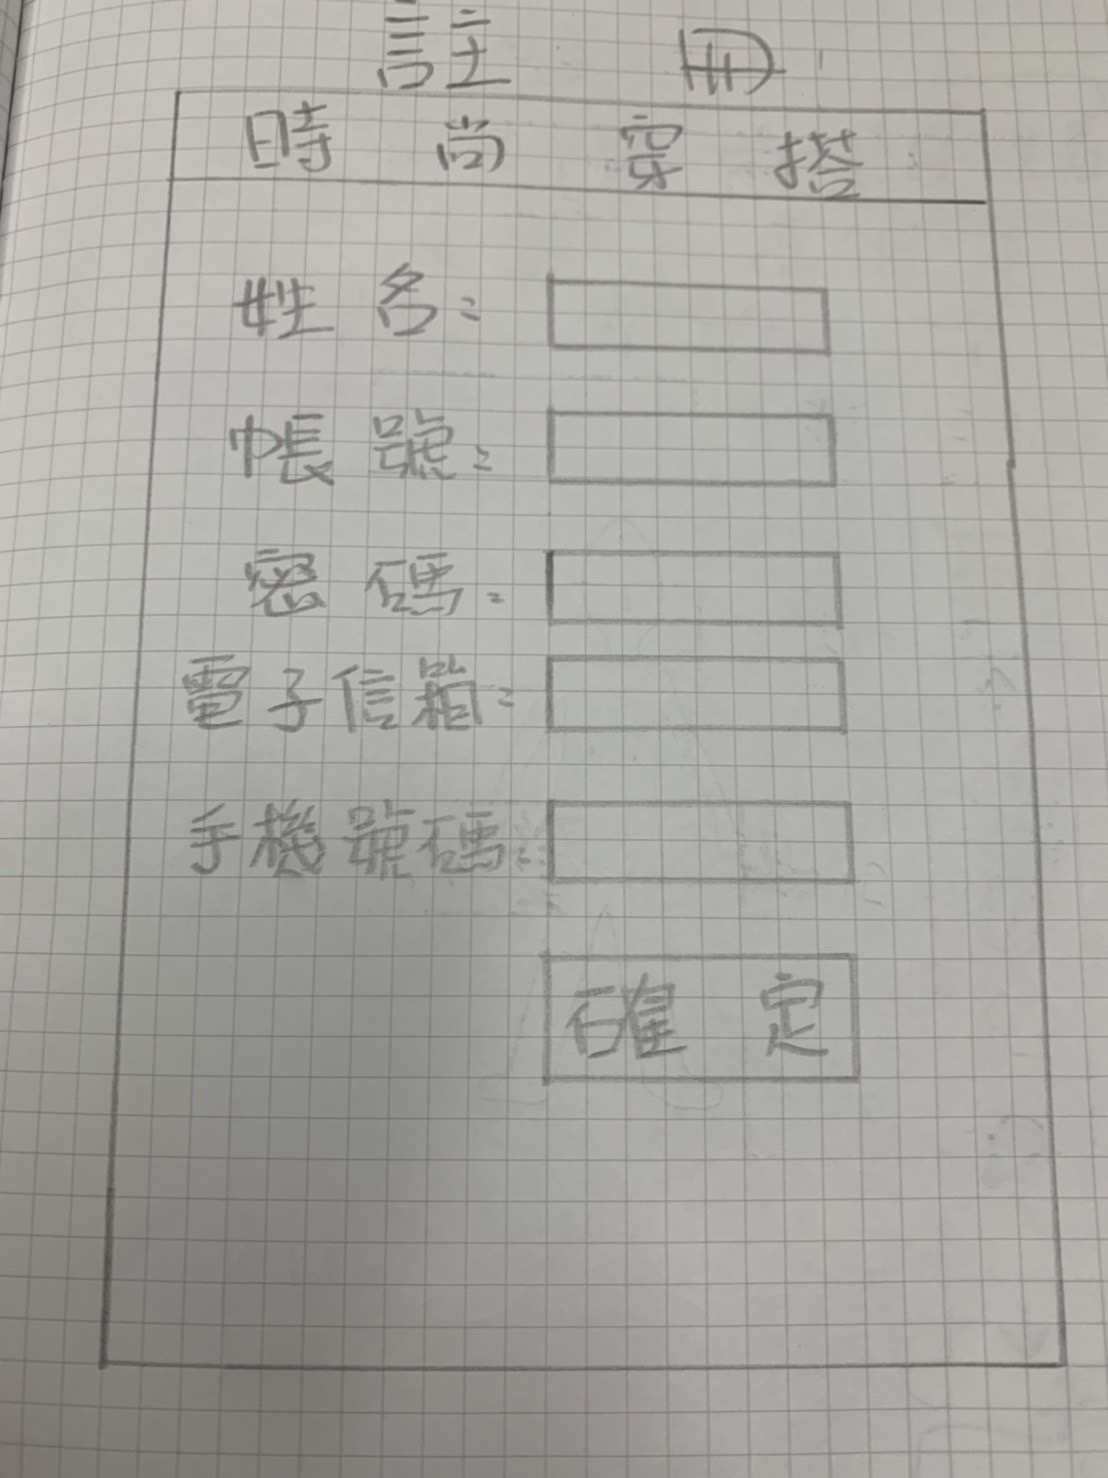 註 冊
時 尚 穿 搭
姓 名:
帳 號:
密 碼:
電子信箱:
手機號碼:
確 定